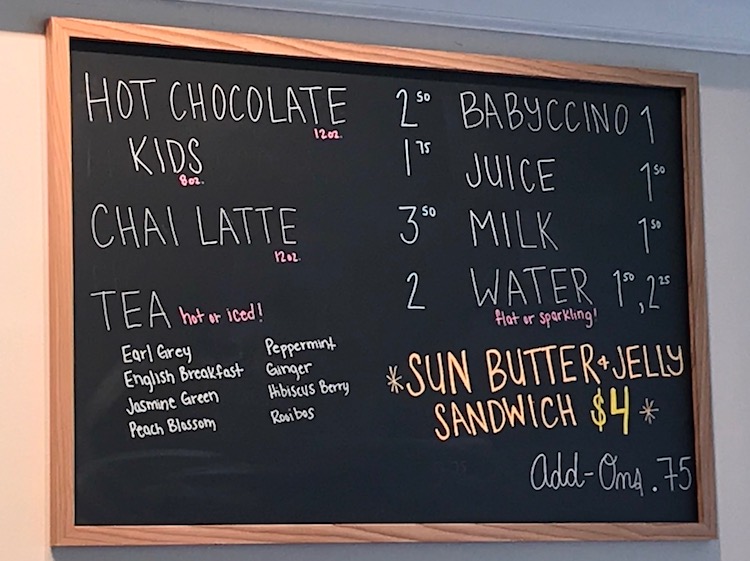 HOT CHOCOLATE 2 50
12oz.
KIDS 1 75
8oz.
CHAI LATTE 3 50
12oz.
TEA hot or iced! 2
Earl Grey
English Breakfast
Jasmine Green
Peach Blossom
Peppermint
Ginger
Hibiscus Berry
Rooibos
BABYCCINO 1
JUICE 1 50
MILK 1 50
WATER 1 50, 2 25
flat or sparkling!
*SUN BUTTER + JELLY
SANDWICH $4 *
Add-Ons .75